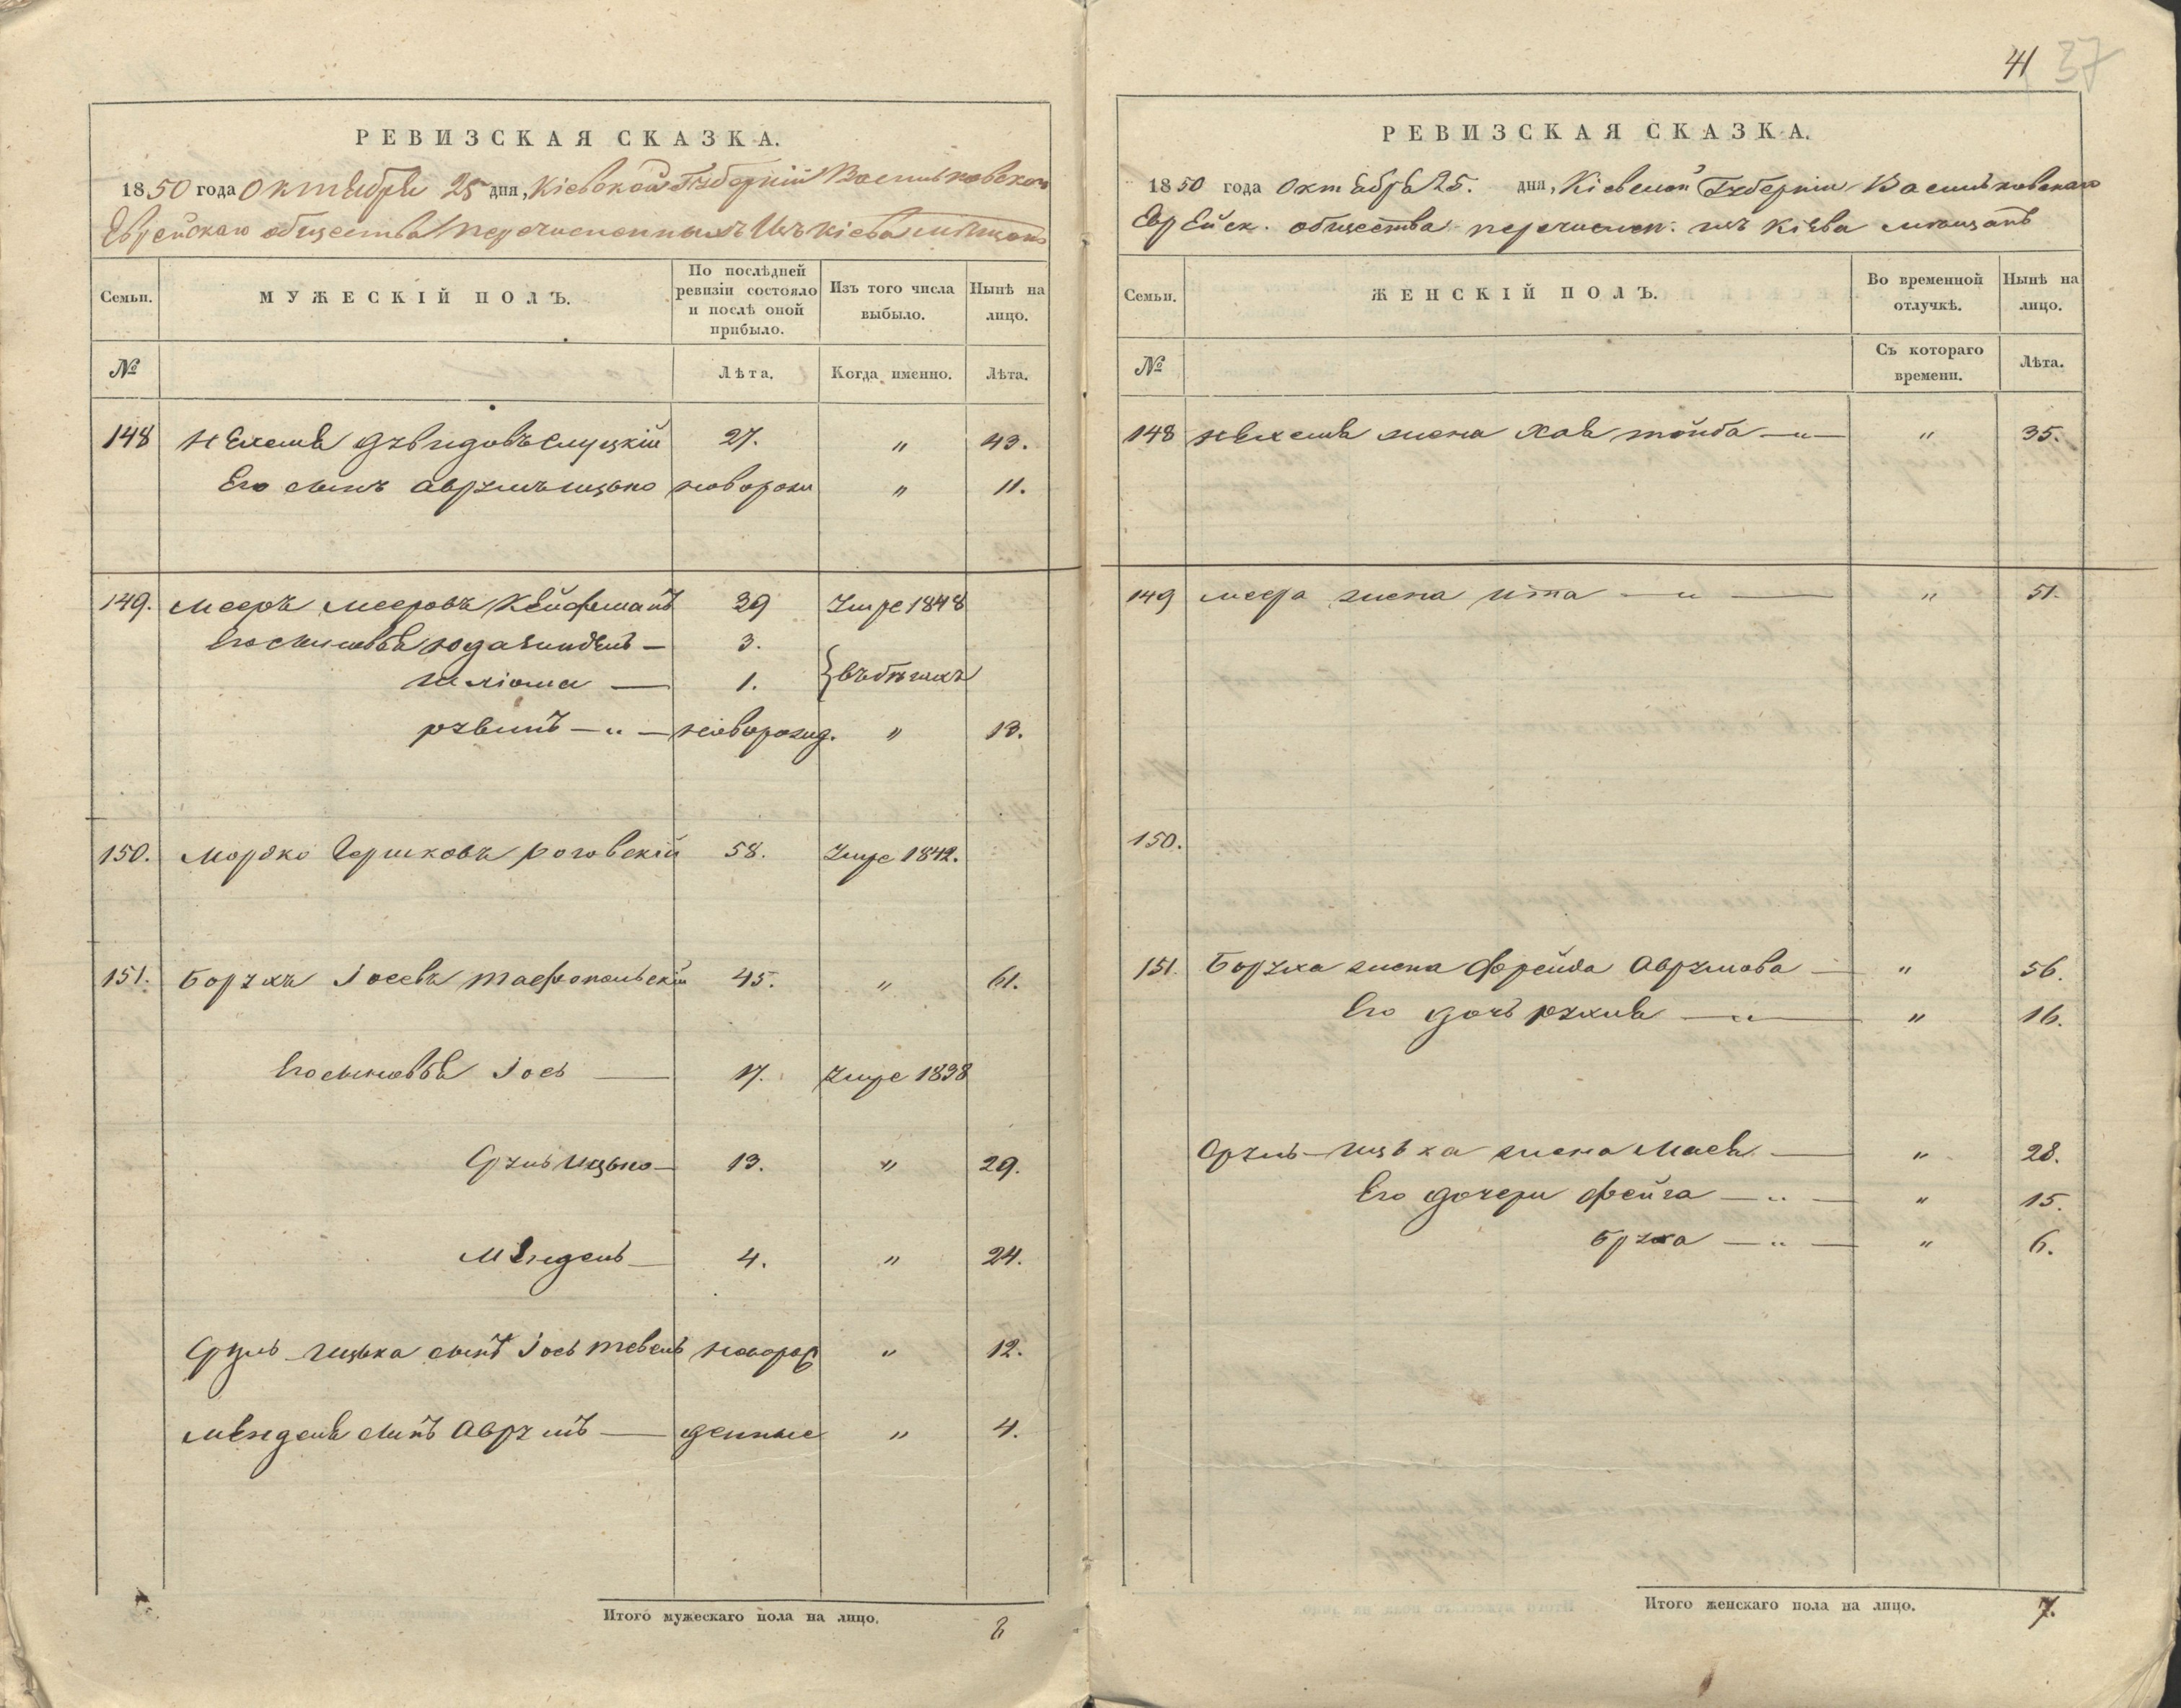 41 37
РЕВИЗСКАЯ СКАЗКА.
1850 года Октября 25 дня, Кіевской Губерніи Васильковскаго
Еврейскаго общества перечисленныхъ изъ Кіева мѣщанъ
Семьи. МУЖЕСКІЙ ПОЛЪ. По послѣдней ревизіи состояло и послѣ оной прибыло. Изъ того числа выбыло. Нынѣ на лицо.
№ Лѣта. Когда именно. Лѣта.
148 Нехемя Дувидовъ Слуцкій 27. " 43.
Его сынъ Аврумъ Ицько новорожд " 11.
149. Мееръ Мееровъ Кейфманъ 39 Умре 1848
Его сыновья Юда Зиндель — 3.
Шліома — 1. } въ бѣгахъ
Рувинъ — " — новорожд. " 13.
150. Мордко Гершковъ Роговскій 58. Умре 1842.
151. Борухъ Іосевъ 45. " 61.
Его сыновья Іось — 17. Умре 1838
Сруль Ицько — 13. " 29.
Мендель — 4. " 24.
Сруль Ицька сынъ Іось Тевель новорож " 12.
Менделя сынъ Аврумъ — денные " 4.
Итого мужескаго пола на лицо. 8
РЕВИЗСКАЯ СКАЗКА.
1850 года Октября 25. дня, Кіевской Губерніи Васильковскаго
Еврейск. общества перечислен. изъ Кіева мѣщанъ
Семьи. ЖЕНСКІЙ ПОЛЪ. Во временной отлучкѣ. Нынѣ на лицо.
№ Съ котораго времени. Лѣта.
148 Нехемя жена Хая Тойба — " — " 35.
149 Меера жена Ита — " — " 51.
150.
151. Боруха жена Фрейда Аврумова — " 56.
Его дочь Рухля — " — " 16.
Сруль-Ицька жена Мася — " 28.
Его дочери Фейга — " — " 15.
Бруха — " — " 6.
Итого женскаго пола на лицо. 7.